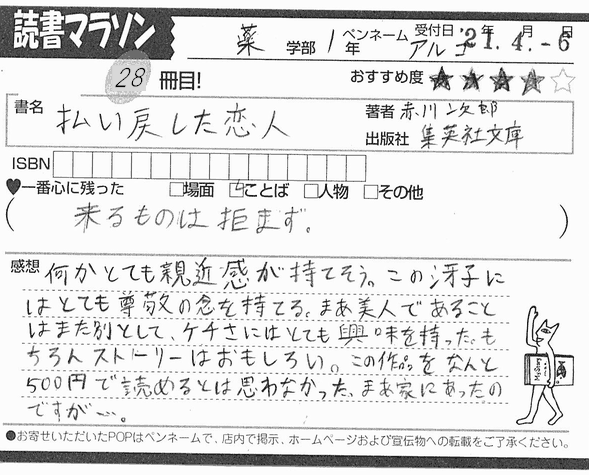 読書マラソン
薬 学部 1年 ペンネーム アルゴ 受付日 '21年4月-6日
28 冊目! おすすめ度 ★★★★☆
書名 払い戻した恋人 著者 赤川次郎
出版社 集英社文庫
ISBN
♥一番心に残った □場面 ☑ことば □人物 □その他
(来るものは拒まず。)
感想 何かとても親近感が持てそう。この冴子に
はとても尊敬の念を持てる。まあ美人であること
はまた別として、ケチさにはとても興味を持った。も
ちろんストーリーはおもしろい。この作品をなんと
500円で読めるとは思わなかった。まあ家にあったの
ですが…。
●お寄せいただいたPOPはペンネームで、店内で掲示、ホームページおよび宣伝物への転載をご了承ください。